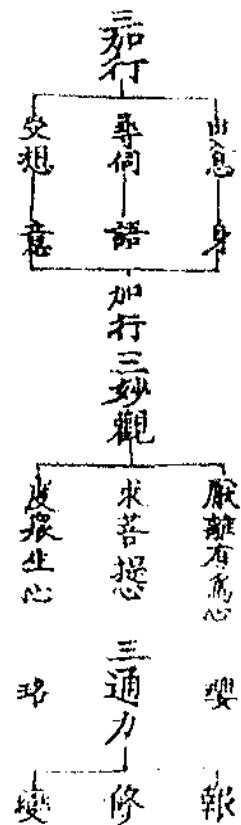 三加行
出入息
身
尋伺
語
受想
意
加行三妙觀
厭離有為心
求菩提心
度衆生心
瓔
珞
三通力
報
修
變